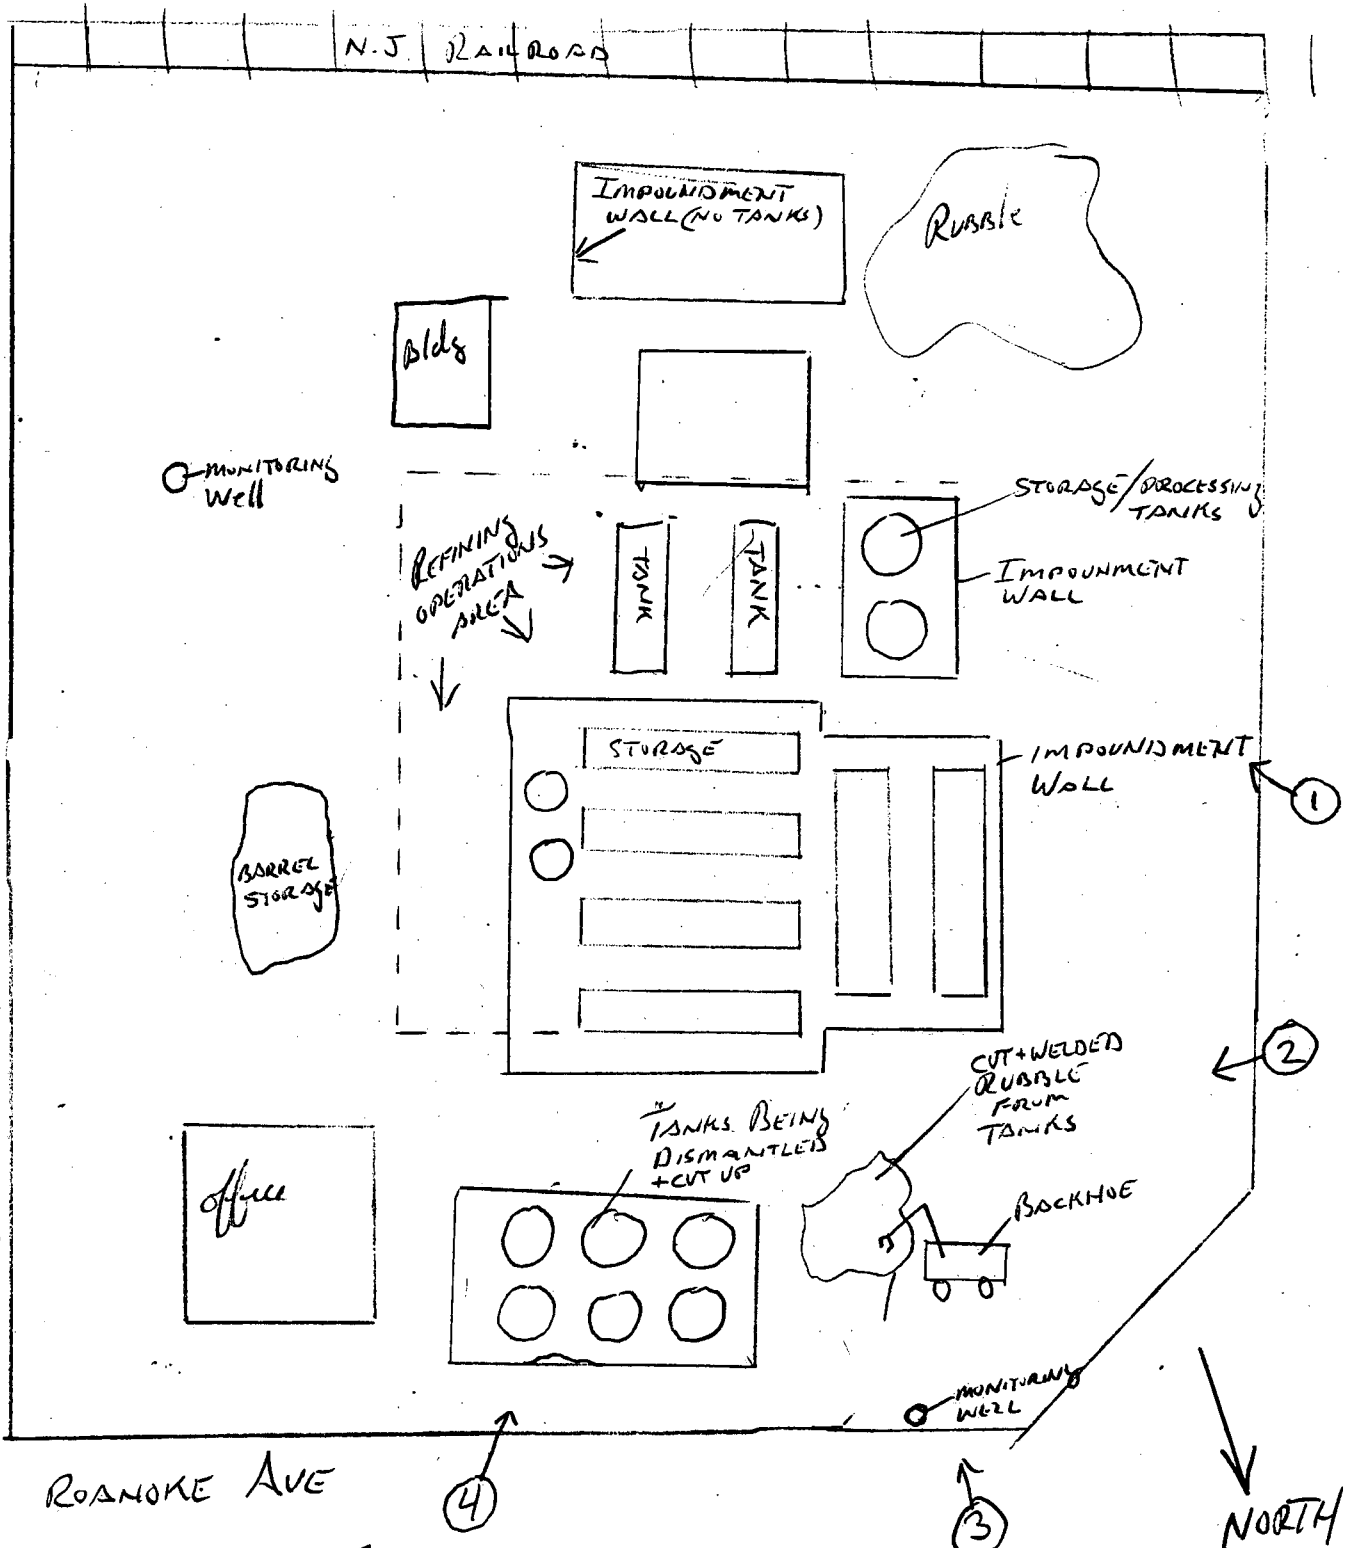 N.J. RAILROAD
IMPOUNDMENT
WALL (NO TANKS)
RUBBLE
Bldg
MONITORING
Well
STORAGE/PROCESSING
TANKS
REFINING
OPERATIONS
AREA
TANK
TANK
IMPOUNMENT
WALL
STORAGE
IMPOUNDMENT
WALL
1
BARREL
STORAGE
2
CUT + WELDED
RUBBLE
FROM
TANKS
TANKS BEING
DISMANTLED
+ CUT UP
office
BACKHOE
MONITORING
WELL
ROANOKE AVE
4
3
NORTH